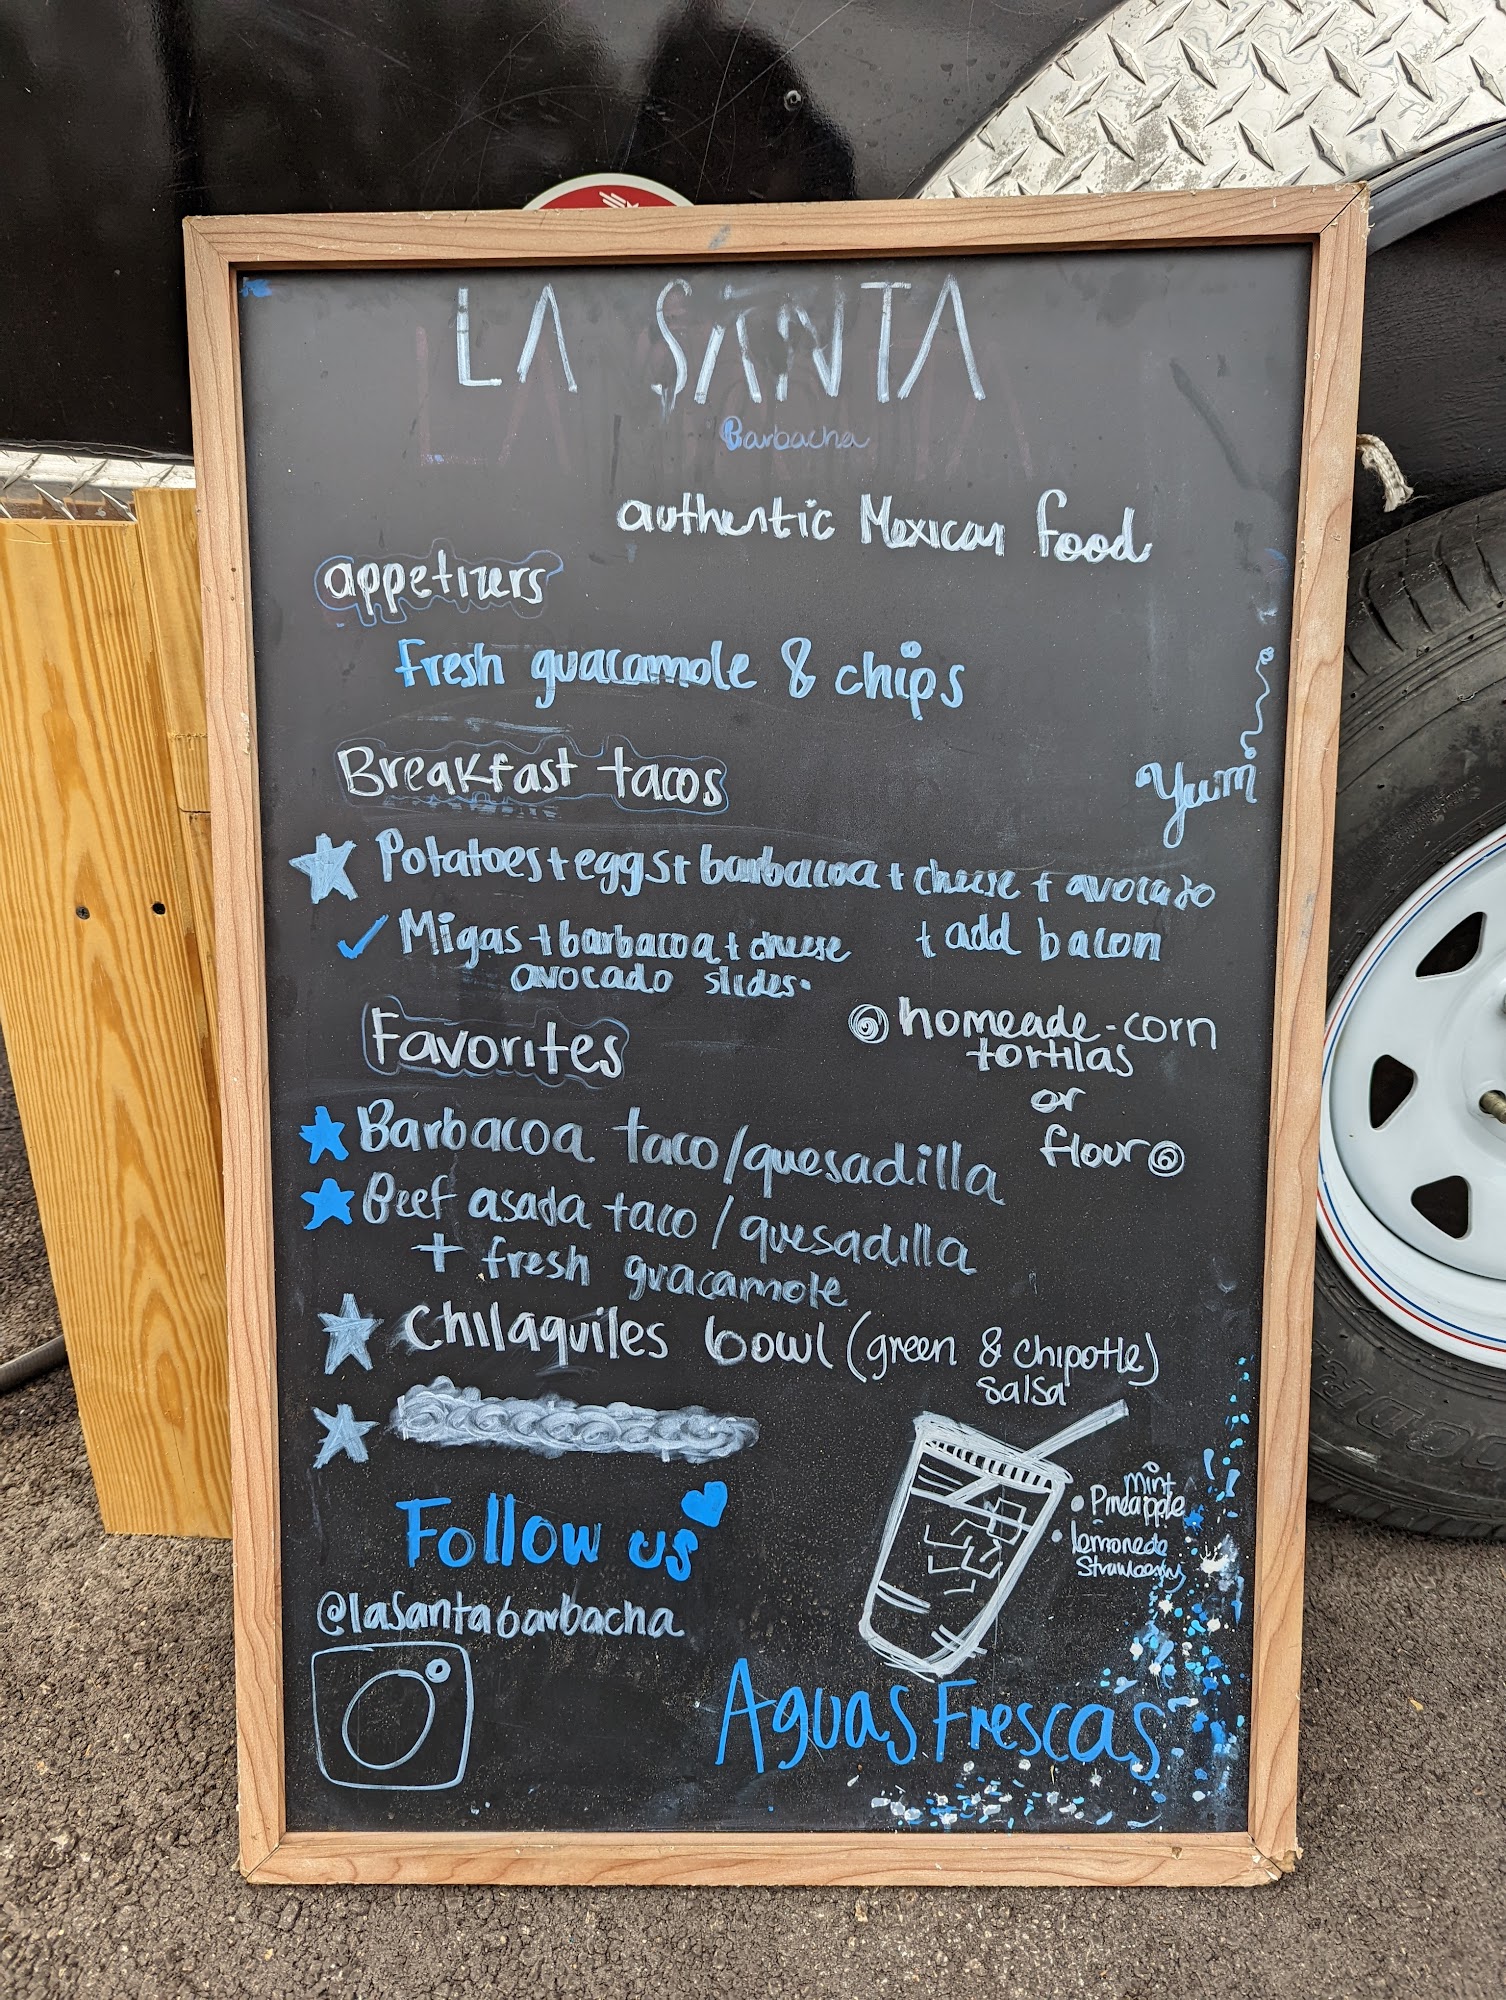 LA SANTA
Barbacha
authentic Mexican food
appetizers
fresh guacamole & chips
Breakfast tacos
Yum
Potatoes + eggs + barbacoa + cheese + avocado
+ add bacon
Migas + barbacoa + cheese
avocado slides.
homeade-corn
tortilas
or
flour
Favorites
Barbacoa taco/quesadilla
Beef asada taco/quesadilla
+ fresh guacamole
Chilaquiles bowl (green & chipotle)
salsa
Follow us
@lasantabarbacha
mint
Pineapple
lemonede
Strawberry
Aguas Frescas